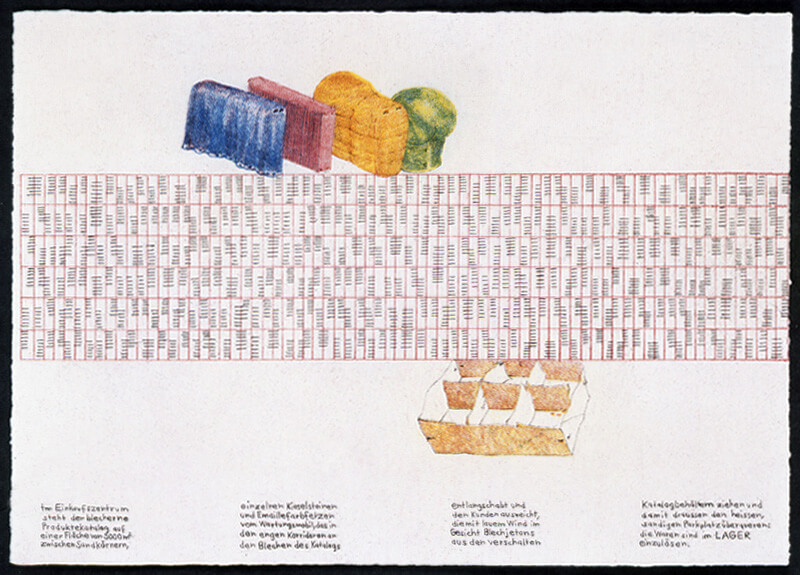 Im Einkaufszentrum
steht der blecherne
Produktekatalog auf
einer Fläche von 5000 m²
zwischen Sandkörnern,
einzelnen Kieselsteinen
und Emaillefarbfetzen
vom Wartungsmobil, das in
den engen Korridoren an
den Blechen des Katalogs
entlangschabt und
den Kunden ausweicht,
die mit lauem Wind im
Gesicht Blechjetons
aus den verschalten
Katalogbehältern ziehen und
damit draussen den heissen,
sandigen Parkplatz überqueren
die Waren sind im LAGER
einzulösen.